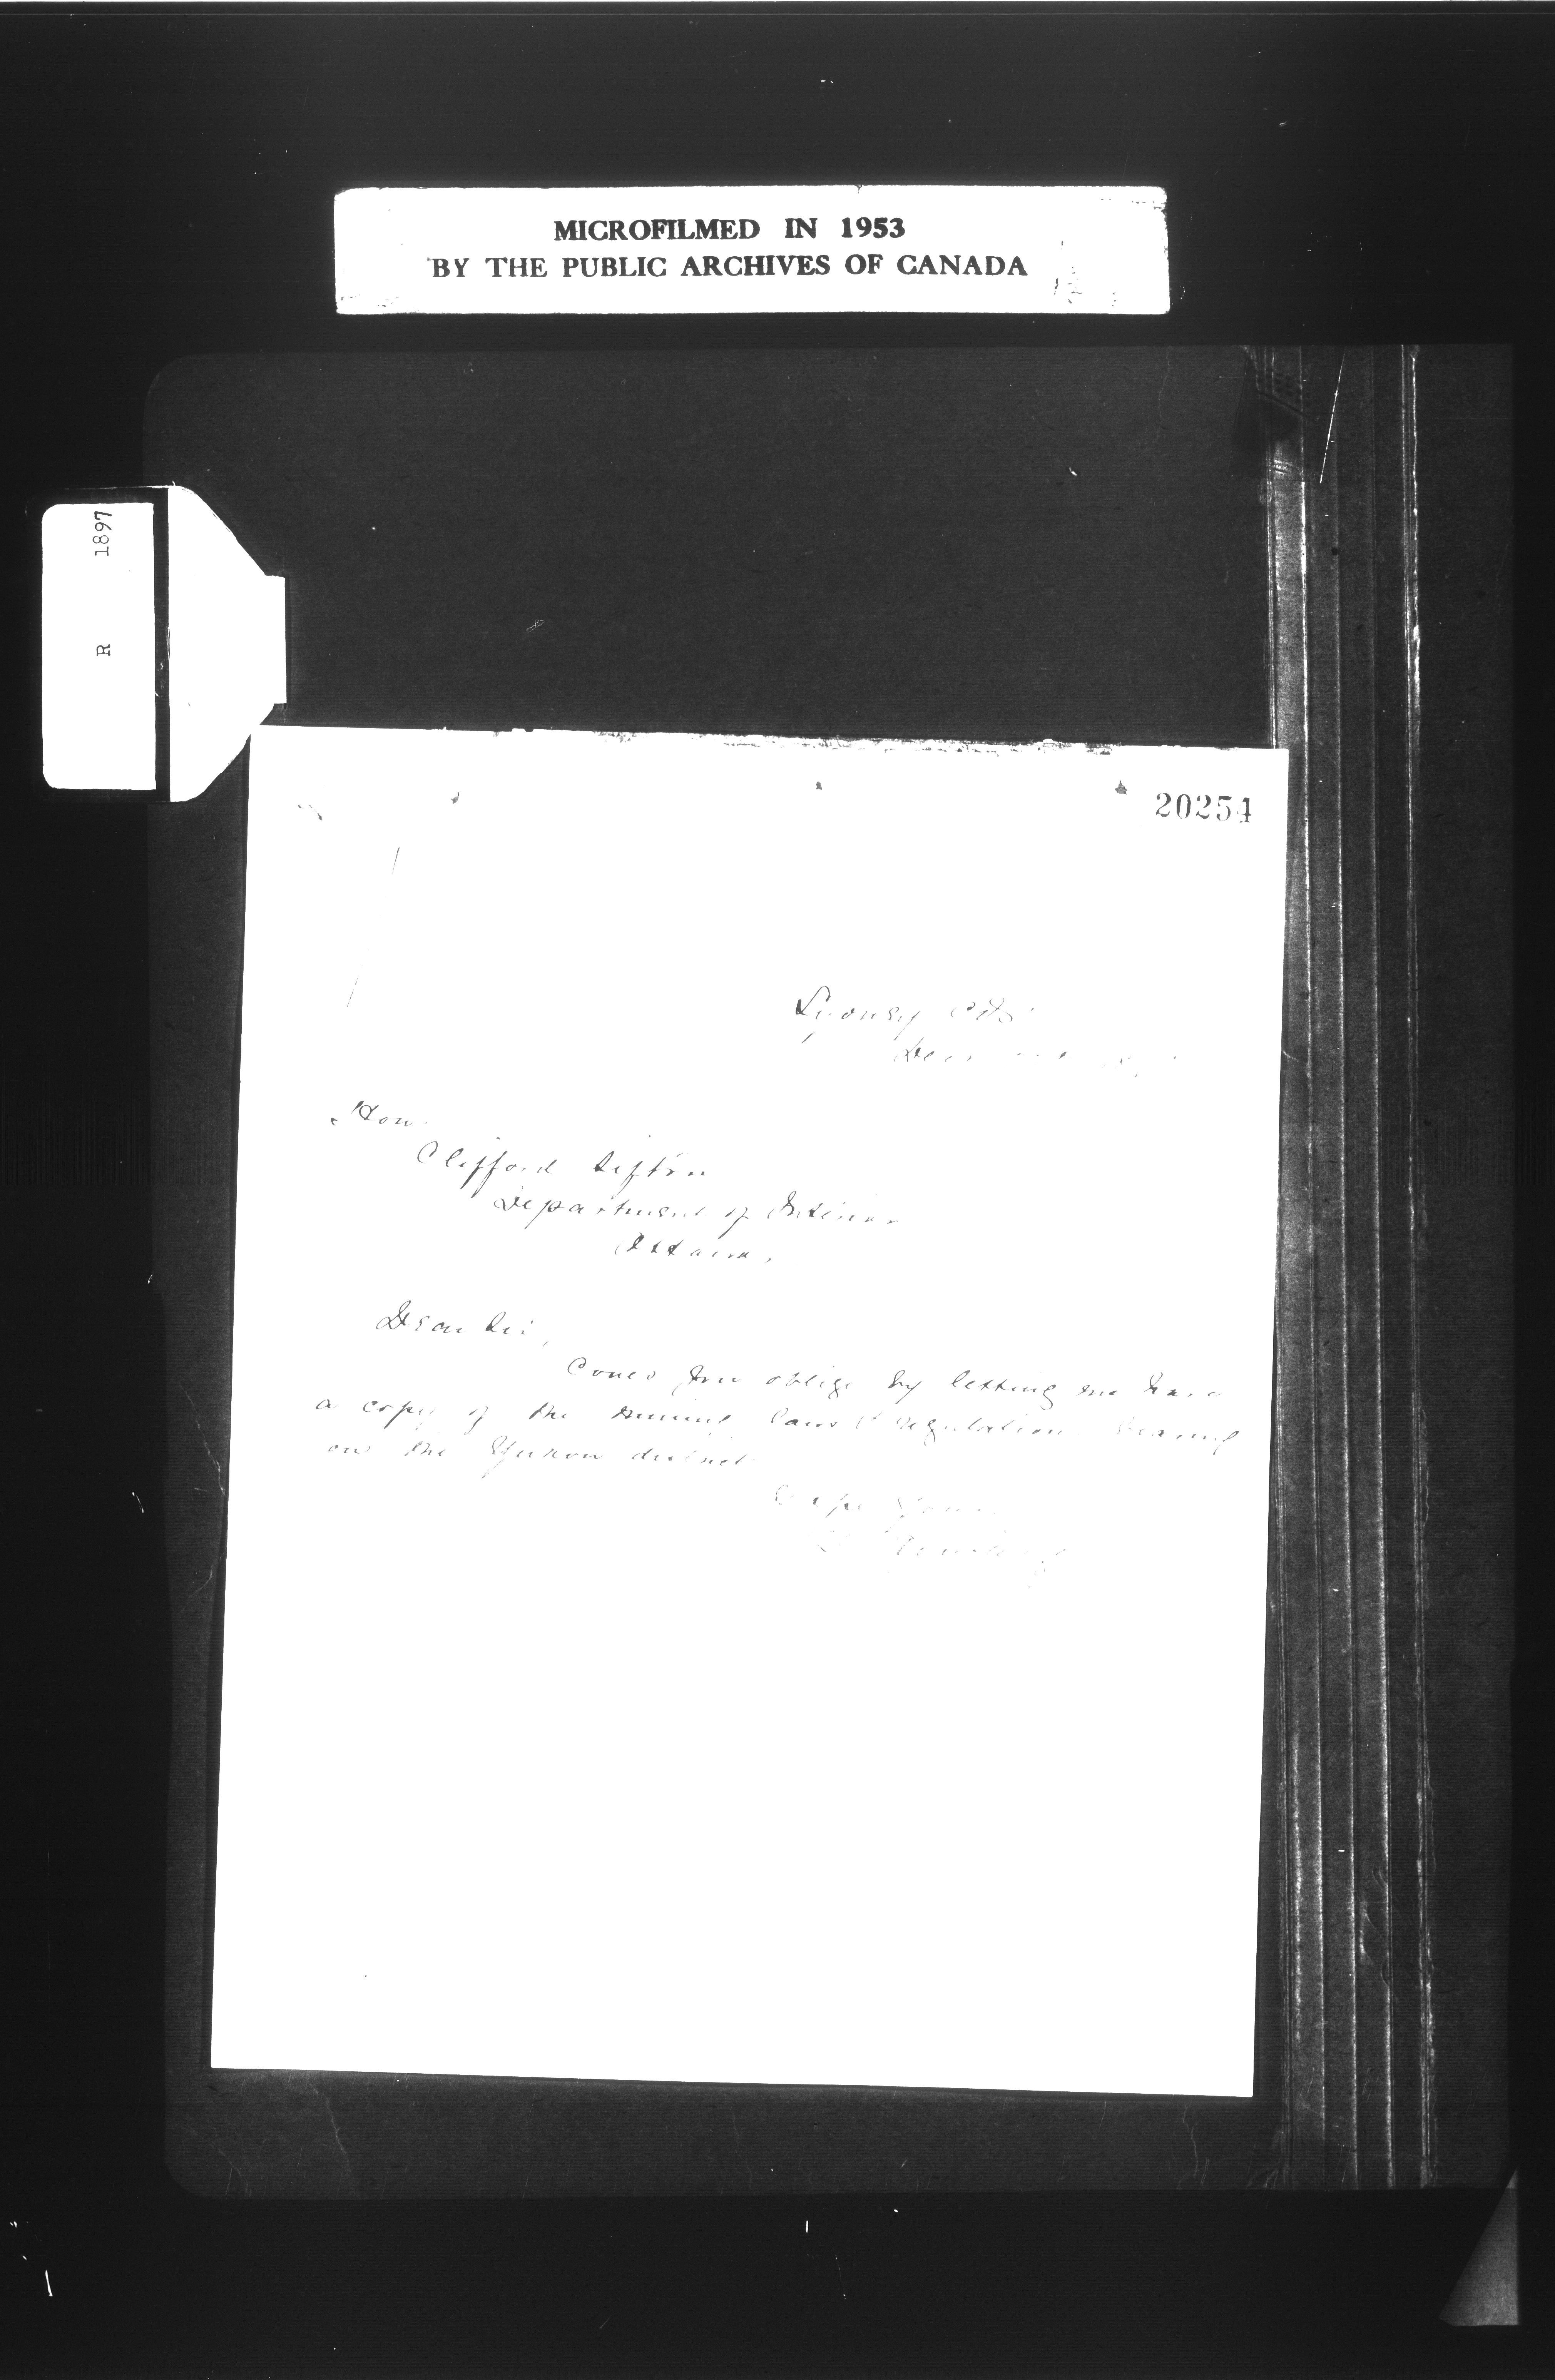 MICROFILMED IN 1953
BY THE PUBLIC ARCHIVES OF CANADA
R 1897
20254
Sydney C.B.
Dec
Hon.
Clifford Sifton
Department of Interior
Ottawa,
Dear Sir,
Could you oblige by letting me have
a copy of the mining laws & regulation bearing
on the Yukon district